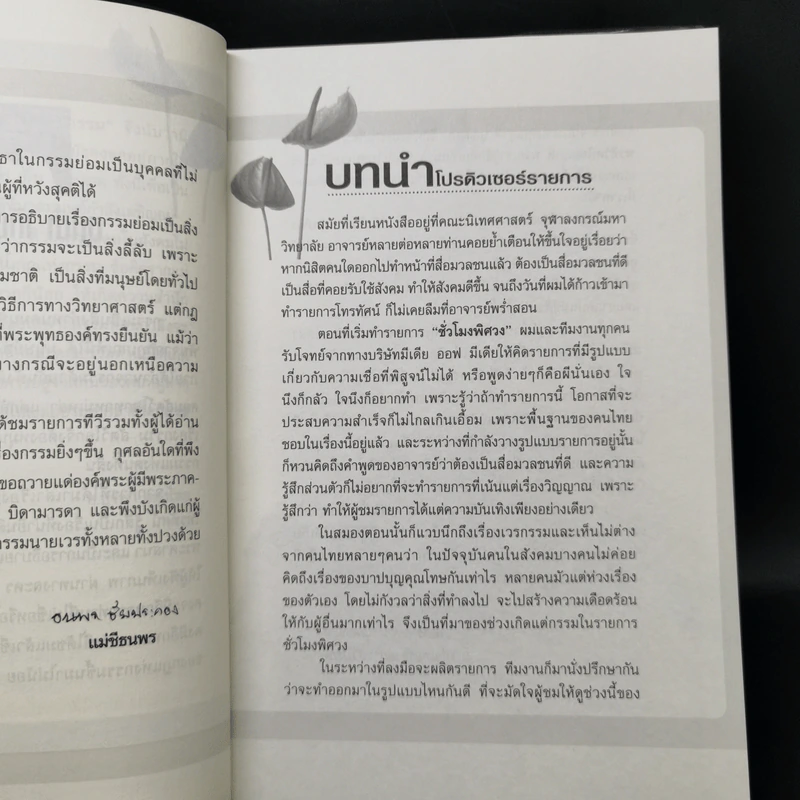 ธาในกรรมย่อมเป็นบุคคลที่ไม่
ผู้ที่หวังสุคติได้
ารอธิบายเรื่องกรรมย่อมเป็นสิ่ง
ว่ากรรมจะเป็นสิ่งลี้ลับ เพราะ
มชาติ เป็นสิ่งที่มนุษย์โดยทั่วไป
วิธีการทางวิทยาศาสตร์ แต่กฎ
ที่พระพุทธองค์ทรงยืนยัน แม้ว่า
างกรณีจะอยู่นอกเหนือความ
ด้ชมรายการทีวีรวมทั้งผู้ได้อ่าน
รื่องกรรมยิ่งๆขึ้น กุศลอันใดที่พึง
ขอถวายแด่องค์พระผู้มีพระภาค-
บิดามารดา และพึงบังเกิดแก่ผู้
กรรมนายเวรทั้งหลายทั้งปวงด้วย
แม่ชีธนพร
บทนำโปรดิวเซอร์รายการ
สมัยที่เรียนหนังสืออยู่ที่คณะนิเทศศาสตร์ จุฬาลงกรณ์มหา
วิทยาลัย อาจารย์หลายต่อหลายท่านคอยย้ำเตือนให้ขึ้นใจอยู่เรื่อยว่า
หากนิสิตคนใดออกไปทำหน้าที่สื่อมวลชนแล้ว ต้องเป็นสื่อมวลชนที่ดี
เป็นสื่อที่คอยรับใช้สังคม ทำให้สังคมดีขึ้น จนถึงวันที่ผมได้ก้าวเข้ามา
ทำรายการโทรทัศน์ ก็ไม่เคยลืมที่อาจารย์พร่ำสอน
ตอนที่เริ่มทำรายการ “ชั่วโมงพิศวง” ผมและทีมงานทุกคน
รับโจทย์จากทางบริษัทมีเดีย ออฟ มีเดียให้คิดรายการที่มีรูปแบบ
เกี่ยวกับความเชื่อที่พิสูจน์ไม่ได้ หรือพูดง่ายๆก็คือผีนั่นเอง ใจ
นึงก็กลัว ใจนึงก็อยากทำ เพราะรู้ว่าถ้าทำรายการนี้ โอกาสที่จะ
ประสบความสำเร็จก็ไม่ไกลเกินเอื้อม เพราะพื้นฐานของคนไทย
ชอบในเรื่องนี้อยู่แล้ว และระหว่างที่กำลังวางรูปแบบรายการอยู่นั้น
ก็หวนคิดถึงคำพูดของอาจารย์ว่าต้องเป็นสื่อมวลชนที่ดี และความ
รู้สึกส่วนตัวก็ไม่อยากที่จะทำรายการที่เน้นแต่เรื่องวิญญาณ เพราะ
รู้สึกว่า ทำให้ผู้ชมรายการได้แต่ความบันเทิงเพียงอย่างเดียว
ในสมองตอนนั้นก็แวบนึกถึงเรื่องเวรกรรมและเห็นไม่ต่าง
จากคนไทยหลายๆคนว่า ในปัจจุบันคนในสังคมบางคนไม่ค่อย
คิดถึงเรื่องของบาปบุญคุณโทษกันเท่าไร หลายคนมัวแต่ห่วงเรื่อง
ของตัวเอง โดยไม่กังวลว่าสิ่งที่ทำลงไป จะไปสร้างความเดือดร้อน
ให้กับผู้อื่นมากเท่าไร จึงเป็นที่มาของช่วงเกิดแต่กรรมในรายการ
ชั่วโมงพิศวง
ในระหว่างที่ลงมือจะผลิตรายการ ทีมงานก็มานั่งปรึกษากัน
ว่าจะทำออกมาในรูปแบบไหนกันดี ที่จะมัดใจผู้ชมให้ดูช่วงนี้ของ